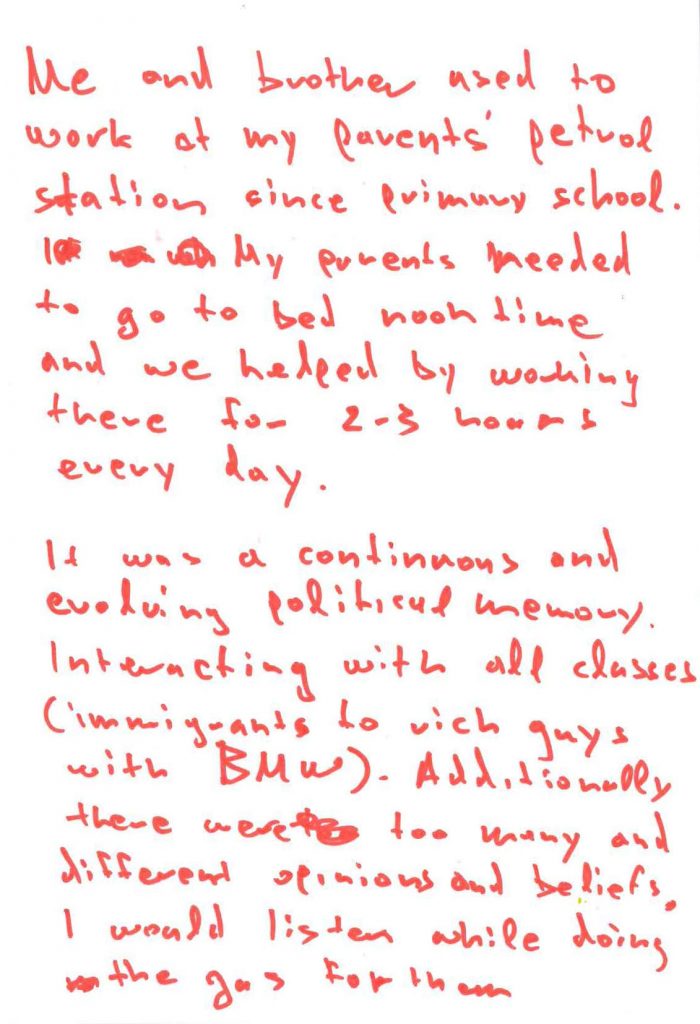 Me and brother used to
work at my parents' petrol
station since primary school.
My parents needed
to go to bed noon time
and we helped by working
there for 2-3 hours
every day.
It was a continuous and
evolving political memory.
Interacting with all classes
(immigrants to rich guys
with BMW). Additionally
there were too many and
different opinions and beliefs.
I would listen while doing
the gas for them